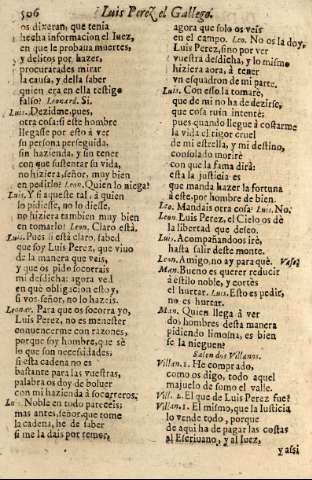 506
Luis Perez el Gallego.
os dixeran, que tenia
hecha informacion el Iuez,
en que le probaua muertes,
y delitos por hazer,
procurarades mirar
la causa, y della saber
quien era en ella testigo
falso? Leonard. Si.
Luis. Dezidme, pues,
otra cosa: si este hombre
llegasse por esto à ver
su persona perseguida,
sin hazienda, y sin tener
con que sustentar su vida,
no hiziera, señor, muy bien
en pedirlo? Leon. Quien lo niega?
Luis. Y si aqueste tal, à quien
lo pidiesse, no lo diesse,
no hiziera tambien muy bien
en tomarlo? Leon. Claro està.
Luis. Pues si està claro, sabed
que soy Luis Perez, que viuo
de la manera que veis,
y que os pido socorrais
mi desdicha: agora ved
en què obligacion estoy,
si vos, señor, no lo hazeis.
Leonar. Para que os socorra yo,
Luis Perez, no es menester
conuencerme con razones,
porque soy hombre, que sè
lo que son necesidades,
si esta cadena no es
bastante para las vuestras,
palabra os doy de boluer
con mi hazienda à socorreros.
Lu. Noble en todo pareceis;
mas antes, señor, que tome
la cadena, he de saber
si me la dais por temor,
agora que solo os veis
en el campo. Leo. No os la doy,
Luis Perez, sino por ver
vuestra desdicha, y lo mismo
hiziera aora, à tener
vn esquadron de mi parte.
Luis. Con esso la tomarè,
que de mi no ha de dezirse,
que cosa ruin intentè;
pues quando llegue à costarme
la vida el rigor cruel
de mi estrella, y mi destino,
consolado morirè
con que la fama dirà:
esta la justicia es
que manda hazer la fortuna
à este, por hombre de bien.
Leo. Mandais otra cosa? Luis. No.
Leon. Luis Perez, el Cielo os dè
la libertad que desseo.
Luis. Acompañandoos irè,
hasta salir deste monte.
Leon. Amigo, no ay para què. Vase.
Man. Bueno es querer reducir
à estilo noble, y cortès
el hurtar. Luis. Esto es pedir,
no es hurtar.
Man. Quien llega à ver
dos hombres desta manera
pidiendo limosna, es bien
se la nieguen?
Salen dos Villanos.
Villan. 1. He comprado,
como os digo, todo aquel
majuelo de somo el valle.
Vill. 2. El que de Luis Perez fue?
Villan. 1. El mismo, que la Iusticia
lo vende todo, porque
de aqui ha de pagar las costas
al Escriuano, y al Iuez,
y assi